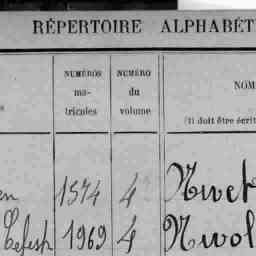 RÉPERTOIRE ALPHABÉT
NUMÉROS
ma-
tricules
NUMÉRO
du
volume
NOM
(Il doit être écrit
en 1574 4 Nivet
Lefest 1969 4 Nivol